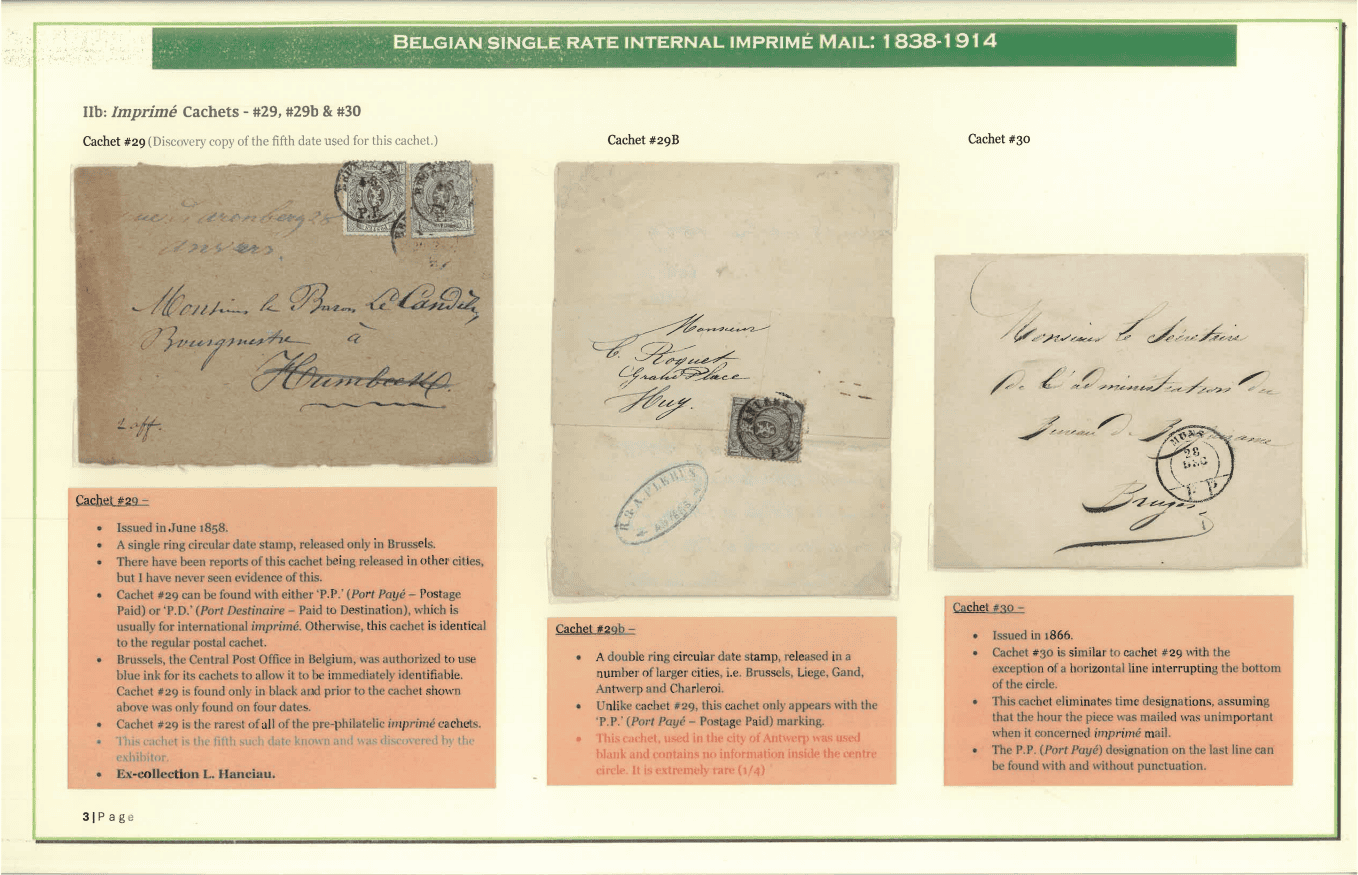 BELGIAN SINGLE RATE INTERNAL IMPRIMÉ MAIL: 1838-1914
IIb: Imprimé Cachets - #29, #29b & #30
Cachet #29 (Discovery copy of the fifth date used for this cachet.)
Anvers.
Monsieur le Baron Le Candèle
Bourgmestre à
Humbeeck
1 aff.
P.P.
Cachet #29 –
• Issued in June 1858.
• A single ring circular date stamp, released only in Brussels.
• There have been reports of this cachet being released in other cities,
but I have never seen evidence of this.
• Cachet #29 can be found with either ‘P.P.’ (Port Payé – Postage
Paid) or ‘P.D.’ (Port Destinaire – Paid to Destination), which is
usually for international imprimé. Otherwise, this cachet is identical
to the regular postal cachet.
• Brussels, the Central Post Office in Belgium, was authorized to use
blue ink for its cachets to allow it to be immediately identifiable.
Cachet #29 is found only in black and prior to the cachet shown
above was only found on four dates.
• Cachet #29 is the rarest of all of the pre-philatelic imprimé cachets.
• This cachet is the fifth such date known and was discovered by the
exhibitor.
• Ex-collection L. Hanciau.
Cachet #29B
Monsieur
C. Roquet
Grand Place
Huy.
ANVERS
Cachet #29b –
• A double ring circular date stamp, released in a
number of larger cities, i.e. Brussels, Liege, Gand,
Antwerp and Charleroi.
• Unlike cachet #29, this cachet only appears with the
‘P.P.’ (Port Payé – Postage Paid) marking.
• This cachet, used in the city of Antwerp was used
blank and contains no information inside the centre
circle. It is extremely rare (1/4)
Cachet #30
Monsieur le Sécretaire
de l'administration du
Bureau de
MONS
28
DEC
P P
Bruges
Cachet #30 –
• Issued in 1866.
• Cachet #30 is similar to cachet #29 with the
exception of a horizontal line interrupting the bottom
of the circle.
• This cachet eliminates time designations, assuming
that the hour the piece was mailed was unimportant
when it concerned imprimé mail.
• The P.P. (Port Payé) designation on the last line can
be found with and without punctuation.
3|Page